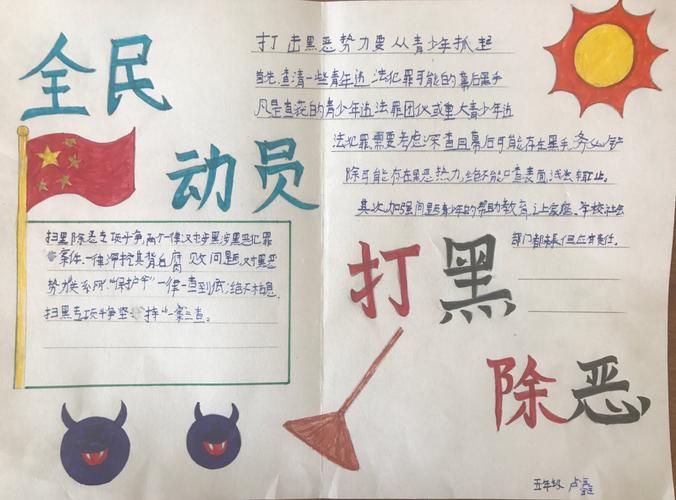 全民
动员
扫黑除恶专项斗争,两个一律:对涉黑涉恶犯罪
案件一律深挖其背后腐败问题,对黑恶
势力关系网"保护伞"一律一查到底,绝不姑息,
扫黑专项斗争坚持"一案三查。
打击黑恶势力要从青少年抓起
首先,查清一些青年违法犯罪可能的幕后黑手
凡是查获的青少年违法罪团伙或重大青少年违
法犯罪,需要考虑深查由幕后可能存在黑手,务必铲
除可能存在黑恶热力,绝不能只查表面
其次,加强问题青少年的帮助教育,让家庭、学校社会
部门都来担应有责任。
打黑
除恶
五年级 卢